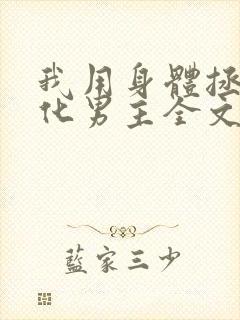 我用身體拯
化男主全文
藍家三少